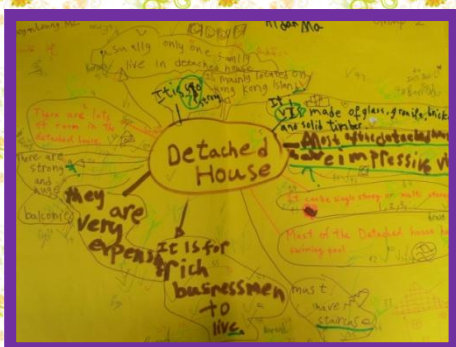 usually only one family
live in detached house
It is
strong
mainly located on
Hong Kong Island
It
is made of glass, granite, brick
and solid timber
Most of the detached hou
have impressive vi
Detached
House
There are lots
of room in the
detached house
There are
strong
and
huge
balconies
They are
very
expens
It is for
rich
businessmen
to
live.
It can be single storey or multi storey
Most of the Detached house ha
swiming pool
must
have
staircase